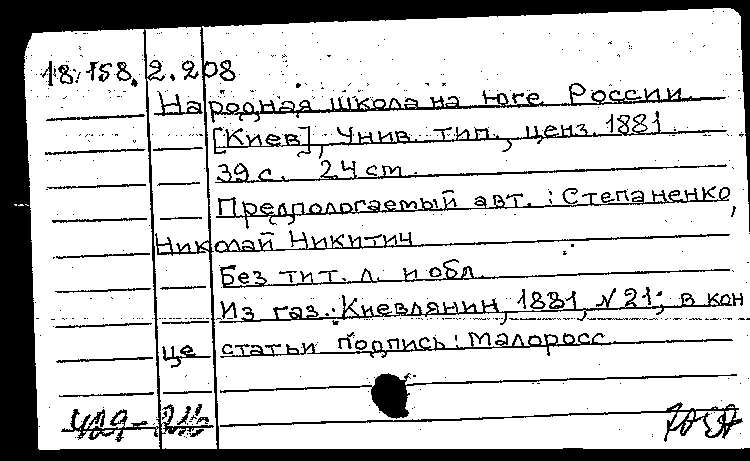 18.158.2.208
Народная школа на юге России.
[Киев], Унив. тип., ценз. 1881.
39 с. 24 cm.
Предпологаемый авт.: Степаненко,
Николай Никитич
Без тит. л. и обл.
Из газ.: Киевлянин, 1881, №21; в кон
це статьи подпись: Малоросс